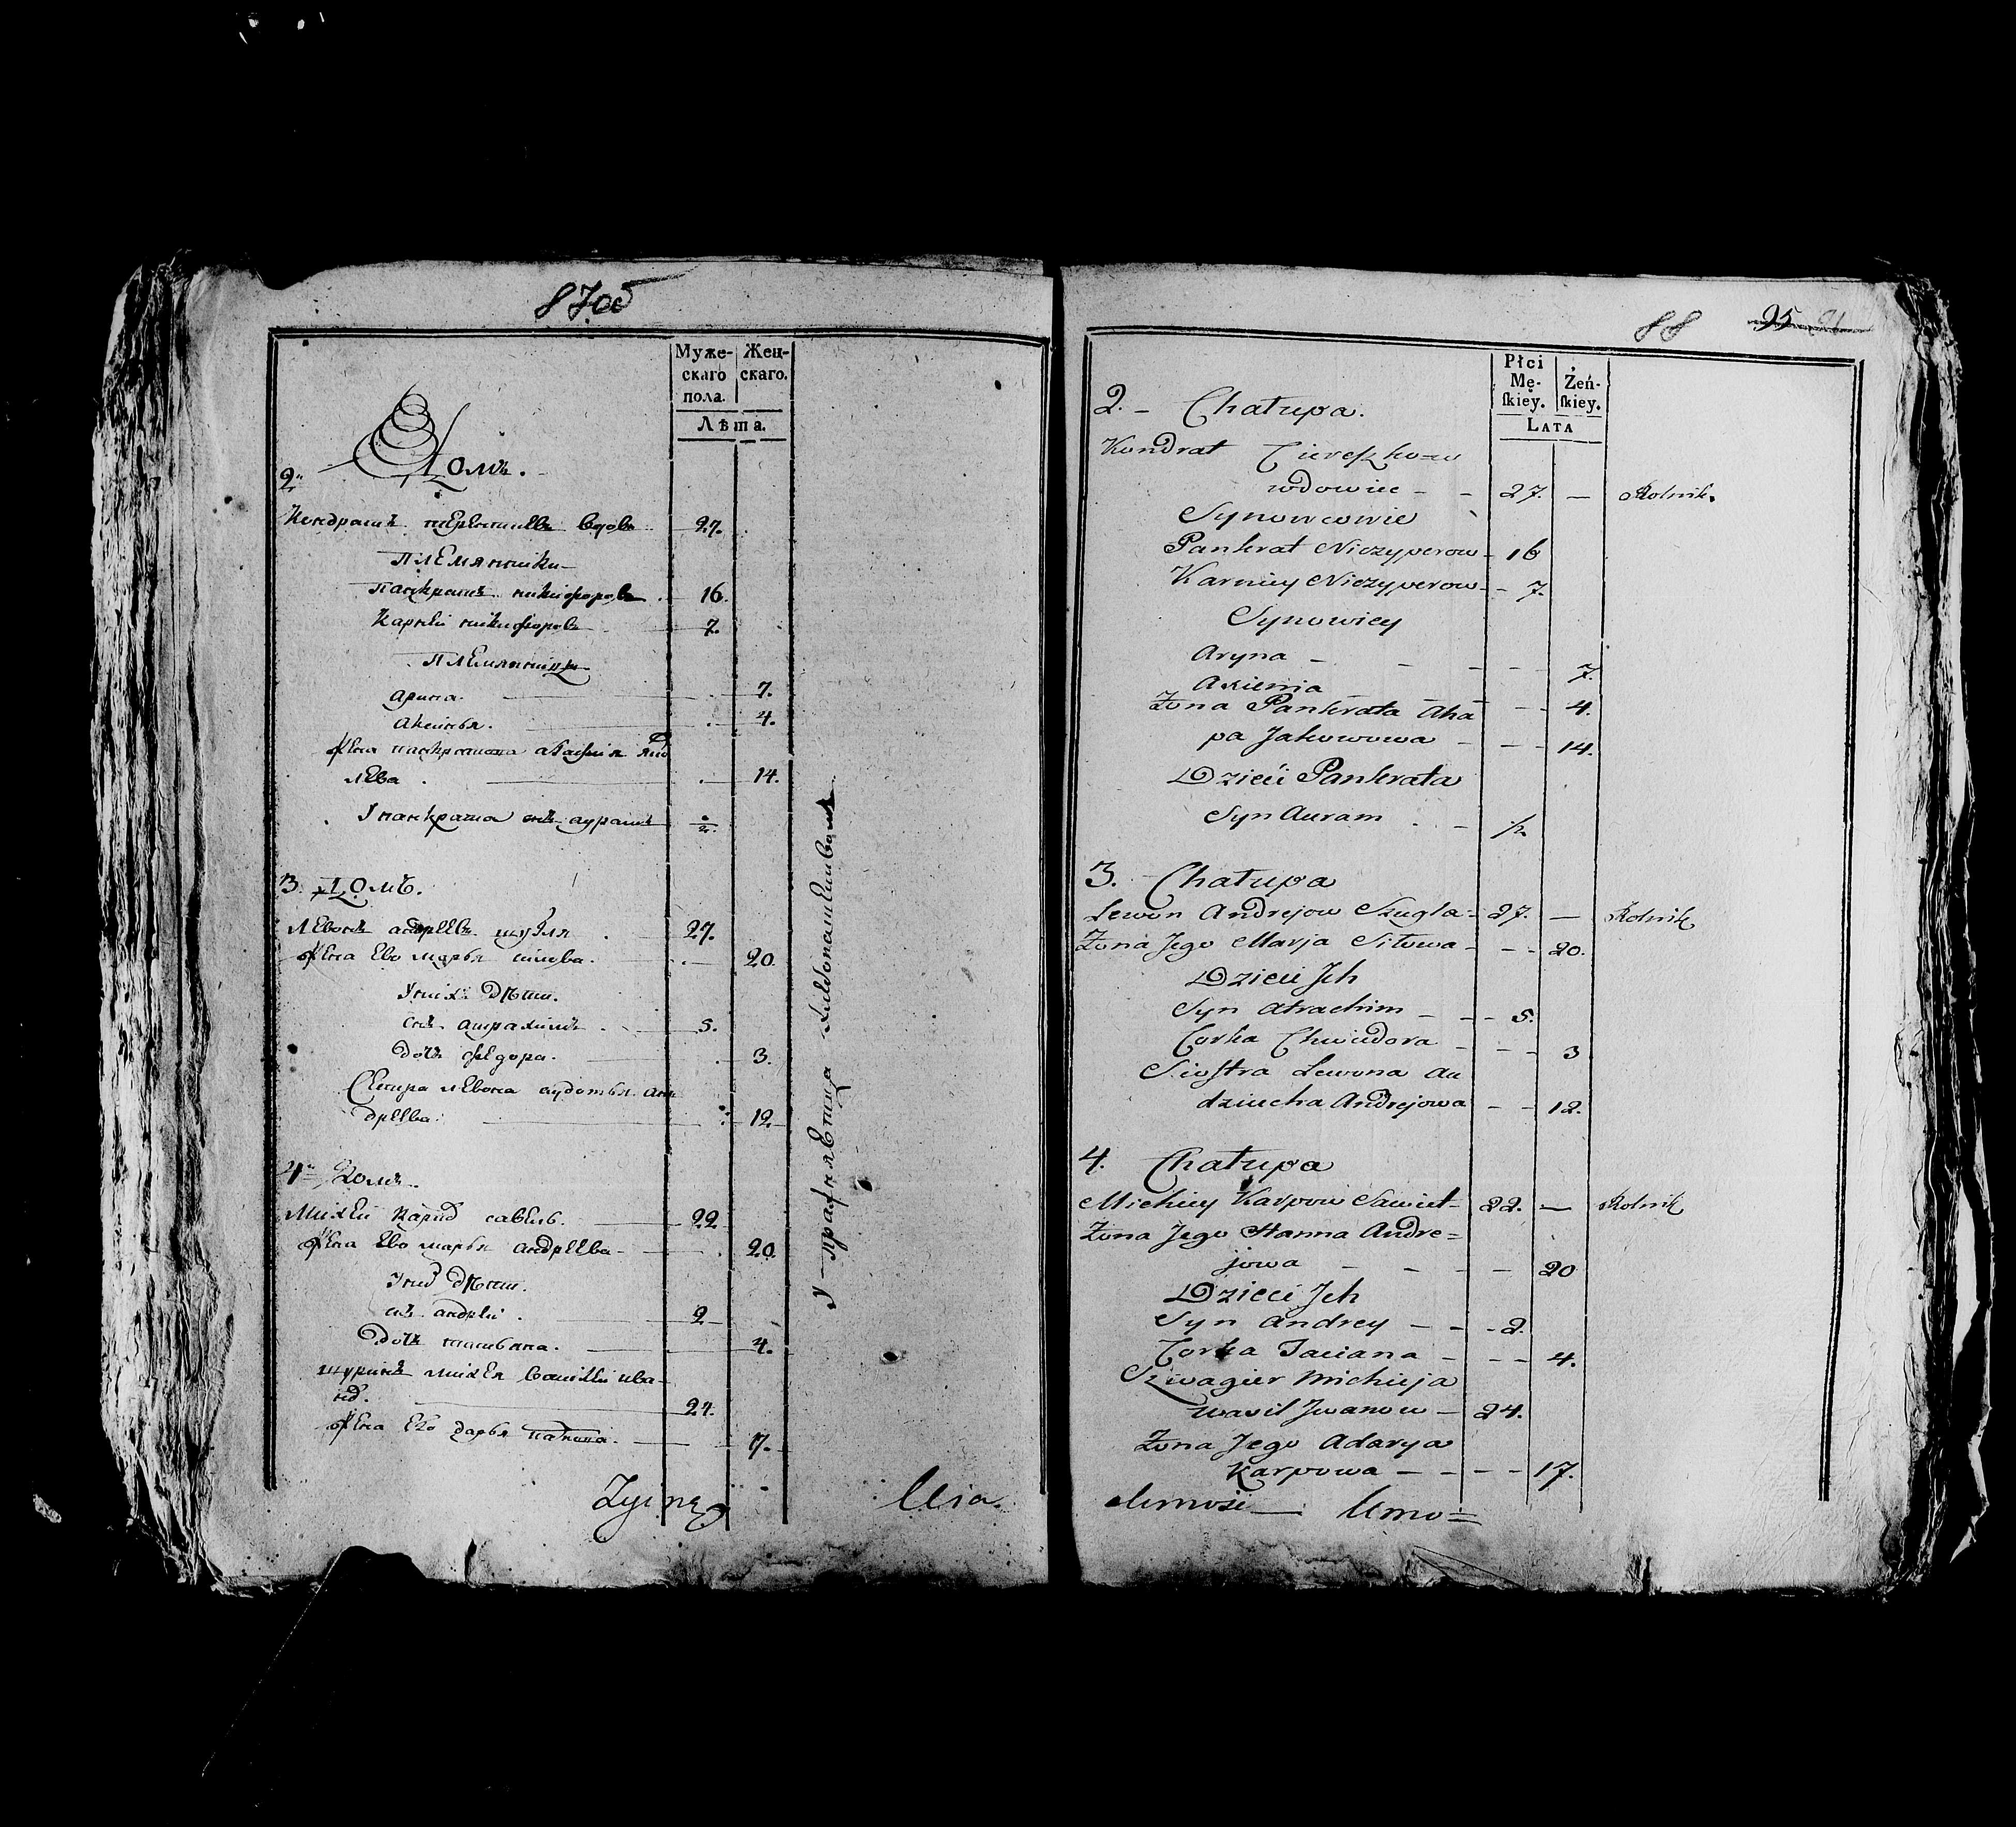 87об
Муже-
скаго
пола.
Жен-
скаго.
Лѣта.
2" Домъ.
Кондратъ терешковъ вдовъ 27.
племянники
панкратъ никифоровъ 16.
Карней никифоровъ 7.
племянницы
арина. 7.
аксинья. 4.
жена панкратова агафия яко
лева 14.
У панкрата снъ аурамъ
3. Домъ.
левонъ андреевъ шугля 27.
жена ево марья 20.
У них дѣти.
снъ атрахимъ 5.
дочь федора. 3.
Сестра левона аудотья ан
дреева. 12
4" домъ.
Михей карпов савель. 22
жена ево марья андреева 20.
У них дѣти.
снъ андрей. 2
дочь татьяна. 4.
шуринъ михея василей ива
нов. 24.
жена ево дарья 17.
88 95
Płci
Mę-
skiey.
Żeń-
skiey.
LATA
2. – Chałupa.
Kondrat Ciereszkow
wdowiec – – 27. – Rolnik.
Synowcowie
Pankrat Niczyperow – 16
Karniey Niczyperow – – 7.
Synowicy
Aryna – – – – – 7.
Axienia – – – – 4.
Żona Pankrata Aha
pa Jakowowa – – – 14.
Dzieci Pankrata
Syn Auram – ½.
3. Chałupa
Lewon Andrejow Szugla – 27. – Rolnik
Żona Jego Marja Siłowa – – – 20.
Dzieci Jch
Syn Atrachim – – – 5.
Corka Chwiedora – – – 3
Siostra Lewona Au
dziucha Andrejowa – – 12.
4. Chałupa
Michiey Karpow Sawiel – 22. – Rolnik
Żona Jego Hanna Andre=
jowa – – – – 20
Dzieci Jch
Syn Andrey – – – 2.
Corka Taciana – – – 4.
Szwagier Michieja
Wasil Jwanow – 24.
Żona Jego Adarya
Karpowa – – – – 17.